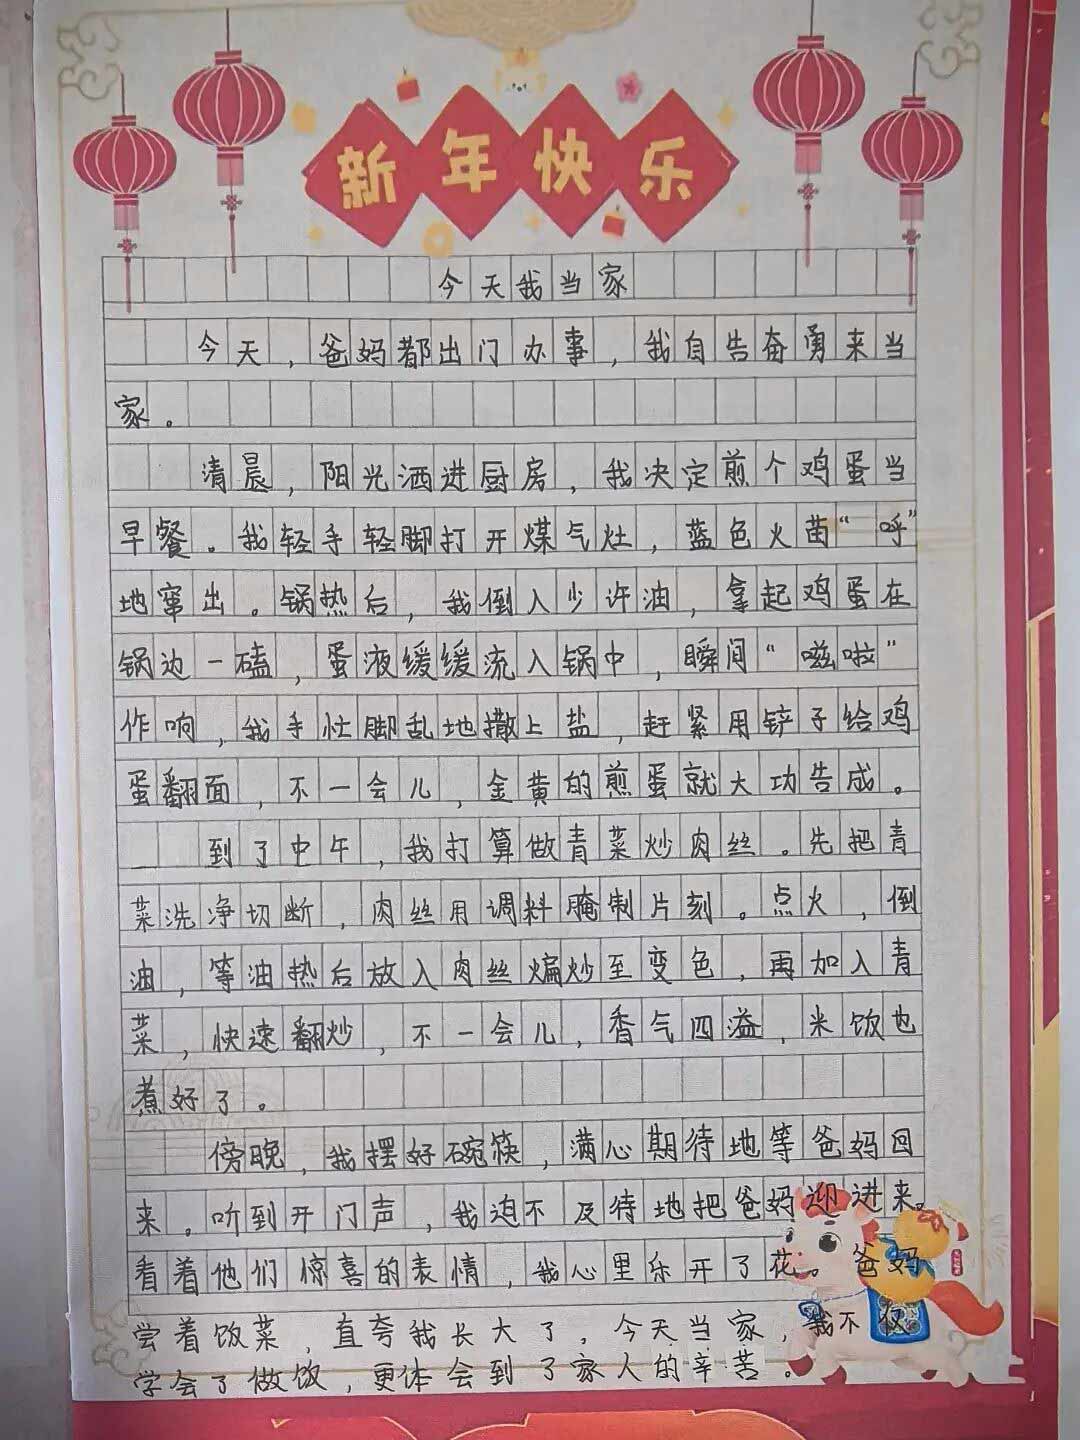 新年快乐
今天我当家
今天，爸妈都出门办事，我自告奋勇来当
家。
清晨，阳光洒进厨房，我决定煎个鸡蛋当
早餐。我轻手轻脚打开煤气灶，蓝色火苗“呼”
地窜出。锅热后，我倒入少许油，拿起鸡蛋在
锅边一磕，蛋液缓缓流入锅中，瞬间“嗞啦”
作响，我手忙脚乱地撒上盐，赶紧用铲子给鸡
蛋翻面，不一会儿，金黄的煎蛋就大功告成。
到了中午，我打算做青菜炒肉丝。先把青
菜洗净切断，肉丝用调料腌制片刻。点火，倒
油，等油热后放入肉丝煸炒至变色，再加入青
菜，快速翻炒，不一会儿，香气四溢，米饭也
煮好了。
傍晚，我摆好碗筷，满心期待地等爸妈回
来。听到开门声，我迫不及待地把爸妈迎进来。
看着他们惊喜的表情，我心里乐开了花。爸妈
尝着饭菜，直夸我长大了，今天当家，我不仅
学会了做饭，更体会到了家人的辛苦。